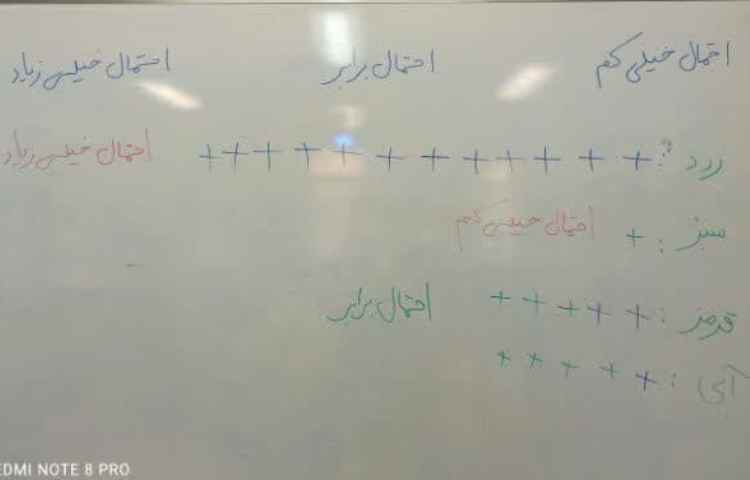 احتمال خیلی کم احتمال برابر احتمال خیلی زیاد
زرد : + + + + + + + + + + + + احتمال خیلی زیاد
سبز : + احتمال خیلی کم
قرمز : + + + + + احتمال برابر
آبی : + + + + +
REDMI NOTE 8 PRO